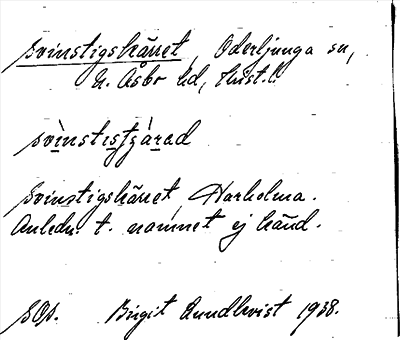 Svinstigskärret, Oderljunga sn,
N. Åsbo hd, Krist. l.
svìnstistjárad
Svinstigskärret, Harholma.
Anledn. t. namnet ej känd.
Birgit Rundkvist 1938.